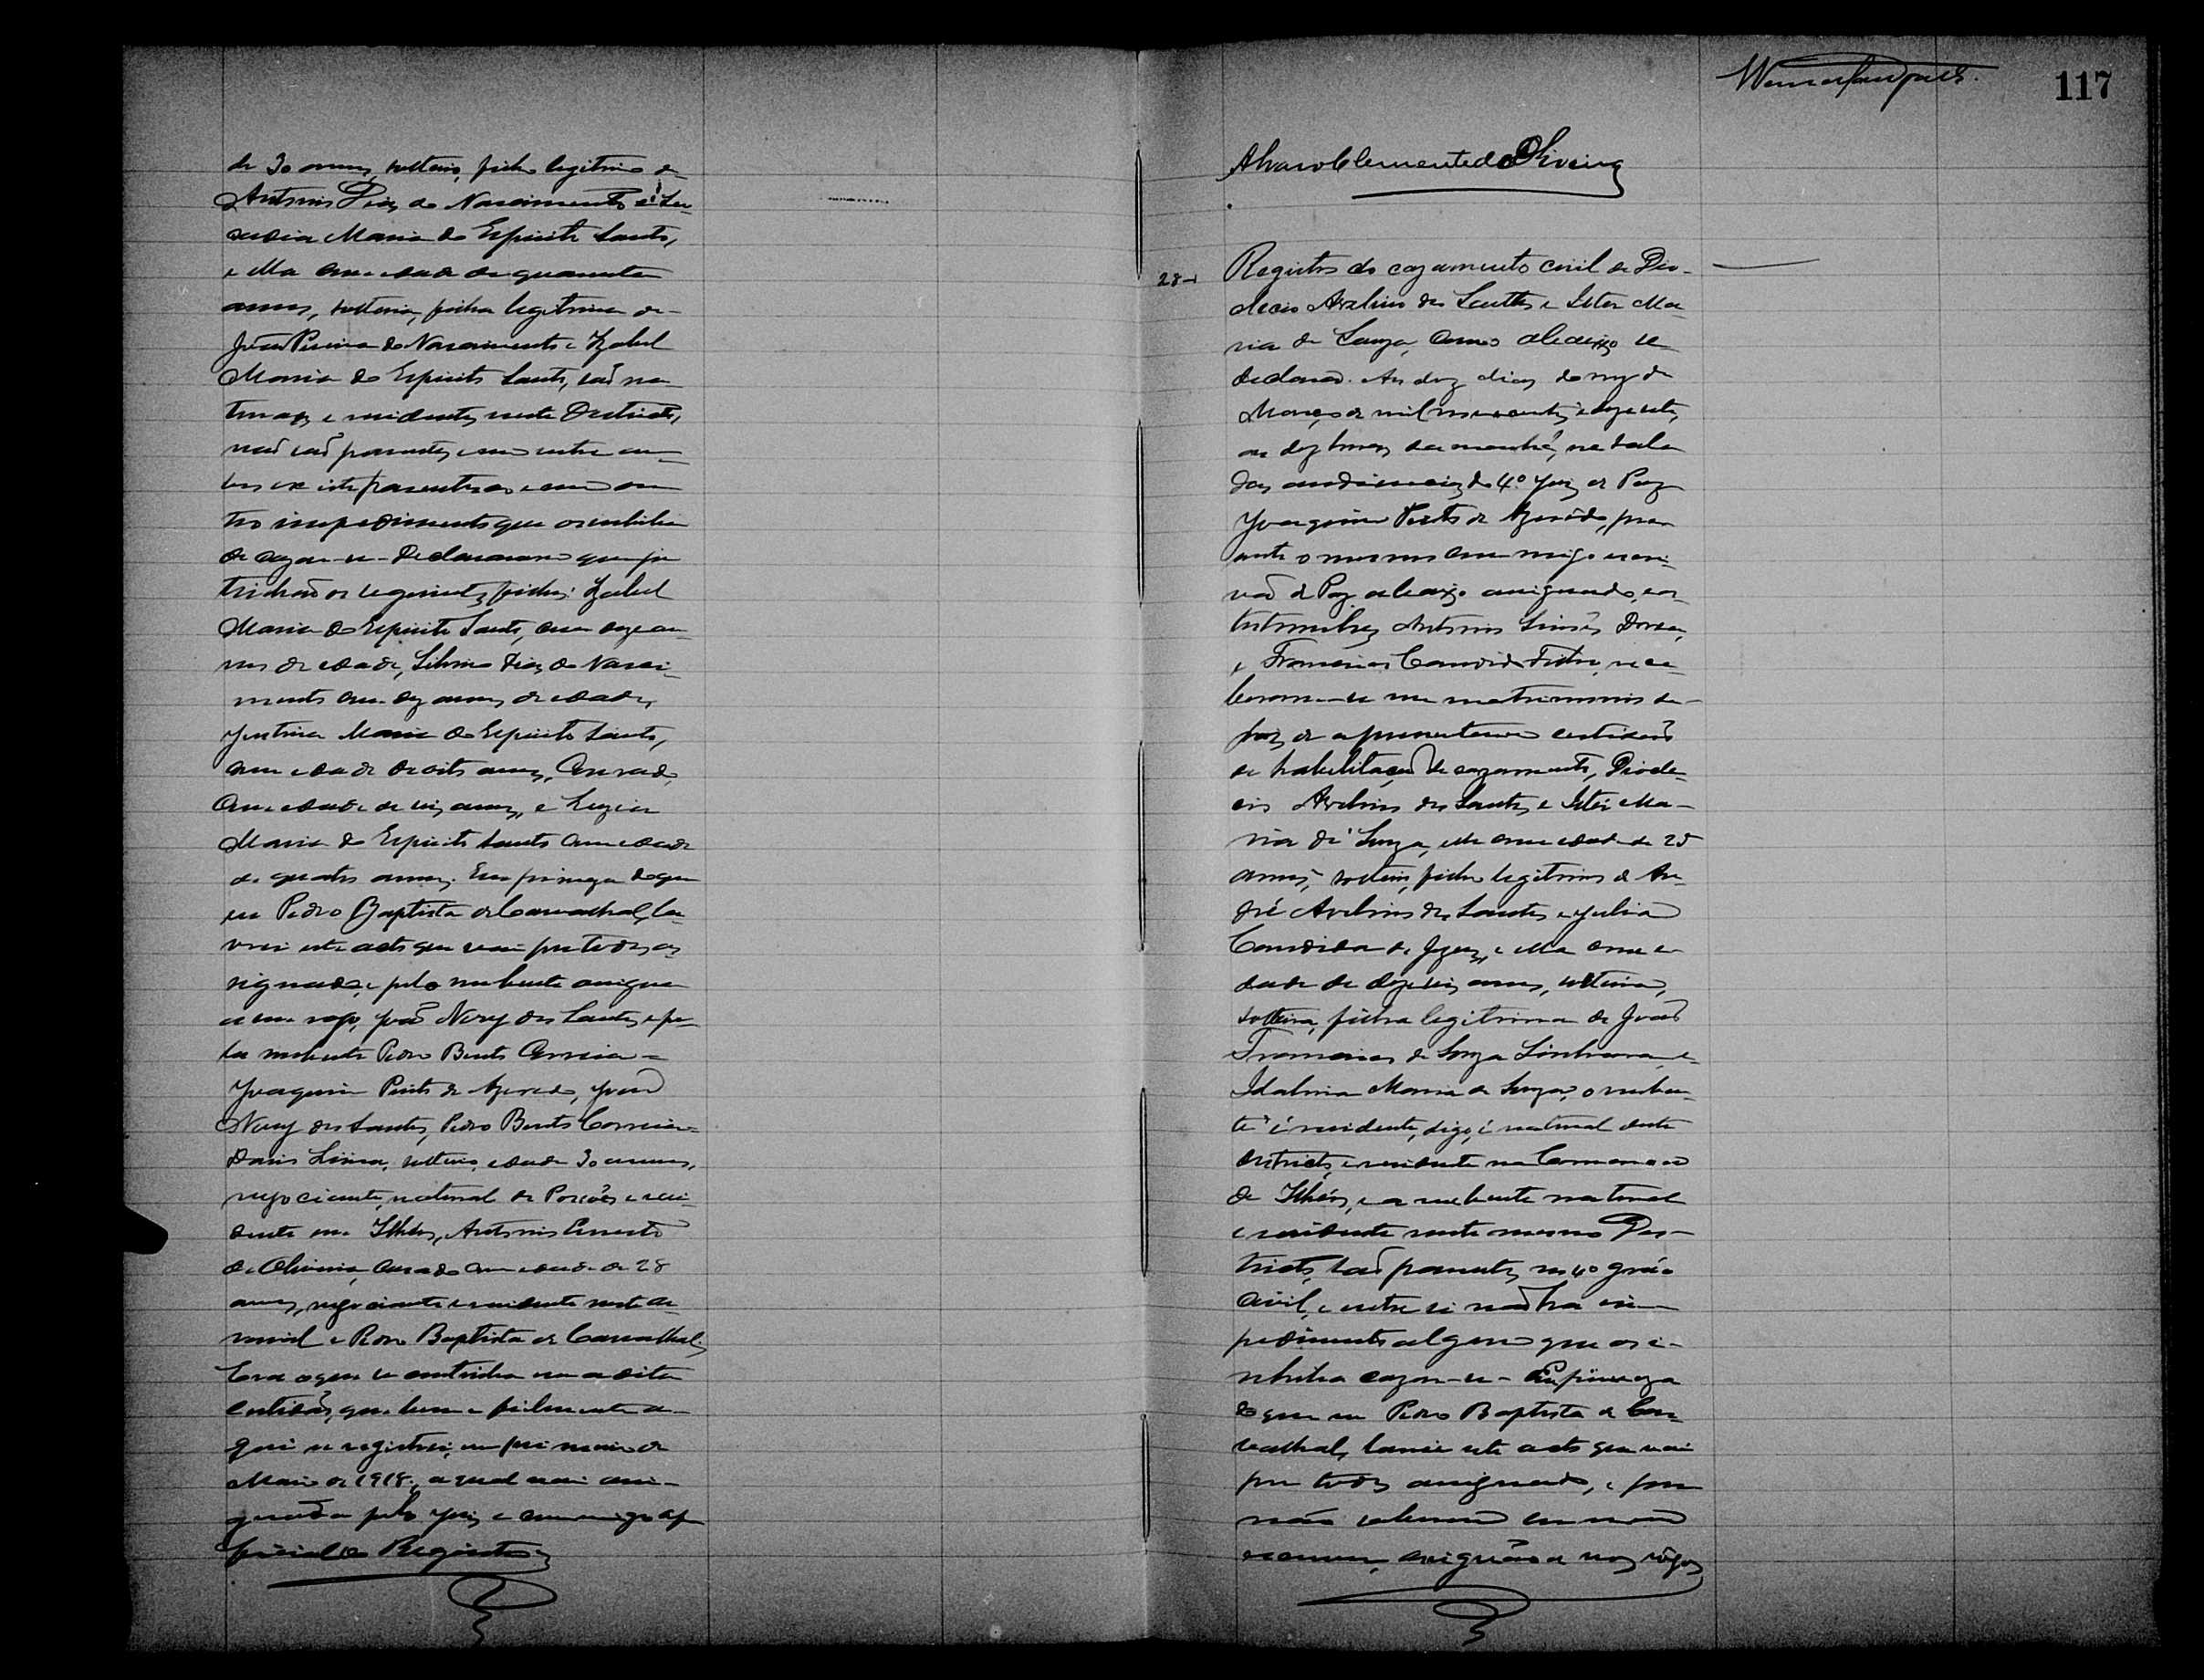 de 30 annos, solteiro, filho legitimo de
Antonio Dias do Nascimento e Leu-
cadia Maria do Espirito Santo,
e ella com edade de quarenta
annos, solteira, filha legitima de
João Pereira do Nascimento e Izabel
Maria do Espirito Santo, são na-
turaes e residentes neste Districto,
não são parentes, nem entre am-
bos existe parentesco e nem ou-
tro impedimento que os inhibia
de cazar-se. Declararam que ja
tinhão os seguintes filhos: Izabel
Maria do Espirito Santo, com onze an-
nos de edade, Silvino Dias do Nasci-
mento com dez annos de edade,
Justina Maria do Espirito Santo,
com edade de oito annos, Conrado,
com edade de seis annos, e Luzia
Maria do Espirito Santo com edade
de quatro annos. Em firmeza do que
eu Pedro Baptista de Carvalhal, la-
vrei este acto que vai por todos as-
signado, e pelo nubente assigna
a seu rogo, João Nery dos Santos e pe-
la nubente Pedro Bento Correia =
Joaquim Pinto de Azevedo, João
Nery dos Santos, Pedro Bento Correia =
Dario Lima, solteiro, edade 30 annos,
negociante, natural de Poções e resi-
dente em Ilhéos, Antonio Ernesto
de Oliveira, casado com edade de 28
annos, negociante e residente neste ar-
raial e Pedro Baptista de Carvalhal.
Era o que se continha na dita
certidão, que bem e fielmente a-
qui a registrei, em primeiro de
Maio de 1918, a qual vai assi-
gnada pelo Juiz e commigo of-
ficial do Registro
117
Alvaro Clemente de Oliveira
28-
Registro do cazamento civil de Dio-
clecio Avelino dos Santos e Ester Ma-
ria de Souza, como abaixo se
declara. Aos dez dias do mez de
Março de mil novecentos e dezesete,
as dez horas da manhã, na sala
das audiencias do 4º Juiz de Paz
Joaquim Pinto de Azevêdo, pre-
ante o mesmo commigo escri-
vão de Paz abaixo assignado, as
testemunhas Antonio Simões Dorea,
e Francisco Candido Filho, rece-
beram-se em matrimonio de-
pois de apresentarem certidão
de habilitação de cazamento, Diocle-
cio Avelino dos Santos e Ester Ma-
ria de Souza, elle com edade de 25
annos, solteiro, filho legitimo de An-
dré Avelino dos Santos e Julia
Candida de Jezus, e ella com e-
dade de dezeseis annos, solteira,
solteira, filha legitima de João
Francisco de Souza e
Idalina Maria de Souza, o nuben-
te é residente, digo, é natural deste
districto, e residente na Comarca
de Ilhéos, e a nubente natural
e residente neste mesmo Des-
tricto, são parentes no 4º gráo
civil, e entre si não ha im-
pedimento algum que os i-
nhiba cazar-se. Em firmeza
do que eu Pedro Baptista de Car-
valhal, lavrei este acto que vai
por todos assignado, e por
não saberem ler nem
escrever, assignão a seus rôgos